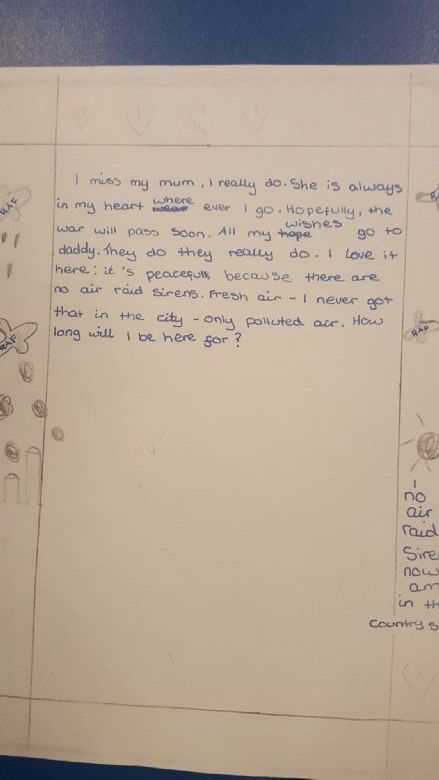 I miss my mum, I really do. She is always
in my heart where ever I go. Hopefully, the
war will pass soon. All my wishes go to
daddy. They do they really do. I love it
here: it's peacefull because there are
no air raid sirens. Fresh air - I never got
that in the city - only polluted air. How
long will I be here for?
RAF
RAF
RAF
no
air
raid
Sire
now
am
in th
Country s